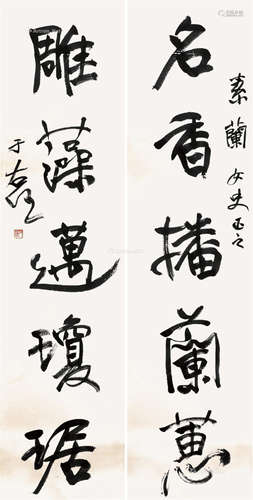 素蘭女史正之
名香播蘭蕙
雕藻邁瓊琚
于右任